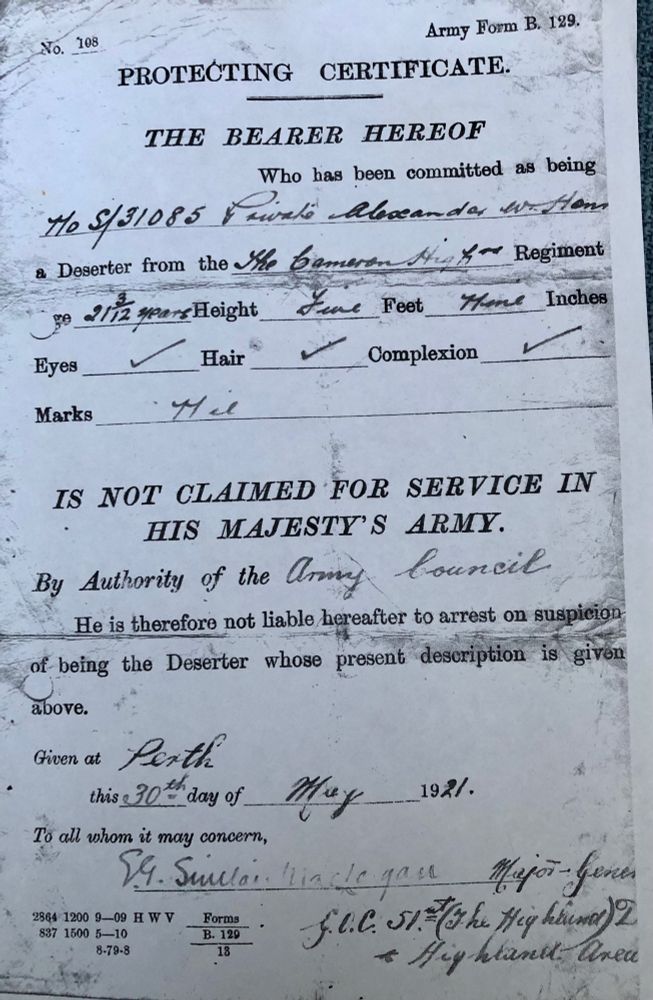 No. 108
Army Form B. 129.
PROTECTING CERTIFICATE.
THE BEARER HEREOF
Who has been committed as being
No S/31085 Private Alexander
a Deserter from the The Cameron Highrs Regiment
ge 21 3/12 years Height Five Feet Nine Inches
Eyes ✓ Hair ✓ Complexion ✓
Marks Nil
IS NOT CLAIMED FOR SERVICE IN
HIS MAJESTY'S ARMY.
By Authority of the Army Council
He is therefore not liable hereafter to arrest on suspicion
of being the Deserter whose present description is given
above.
Given at Perth
this 30th day of May 1921.
To all whom it may concern,
E.G. Sinclair Maclagan Major-Gener
G.O.C. 51st (The Highland) D
& Highland Area
2864 1200 9—09 H W V
837 1500 5—10
8-79-8
Forms
B. 129
13